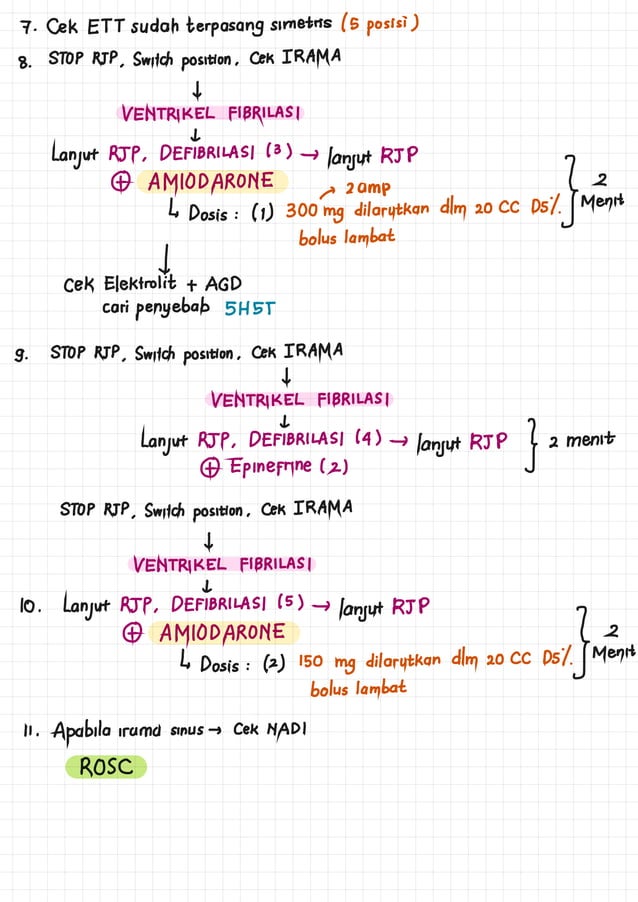 7. Cek ETT sudah terpasang simetris (5 posisi)
8. STOP RJP, Switch position, Cek IRAMA
↓
VENTRIKEL FIBRILASI
↓
Lanjut RJP, DEFIBRILASI (3) → lanjut RJP
⊕ AMIODARONE
→ 2 amp
↳ Dosis : (1) 300 mg dilarutkan dlm 20 CC D5%.
bolus lambat
} 2 Menit
↓
Cek Elektrolit + AGD
cari penyebab 5H5T
9. STOP RJP, Switch position, Cek IRAMA
↓
VENTRIKEL FIBRILASI
↓
Lanjut RJP, DEFIBRILASI (4) → lanjut RJP } 2 menit
⊕ Epinefrine (2)
STOP RJP, Switch position, Cek IRAMA
↓
VENTRIKEL FIBRILASI
↓
10. Lanjut RJP, DEFIBRILASI (5) → lanjut RJP
⊕ AMIODARONE
↳ Dosis : (2) 150 mg dilarutkan dlm 20 CC D5%.
bolus lambat
} 2 Menit
11. Apabila irama sinus → Cek NADI
ROSC